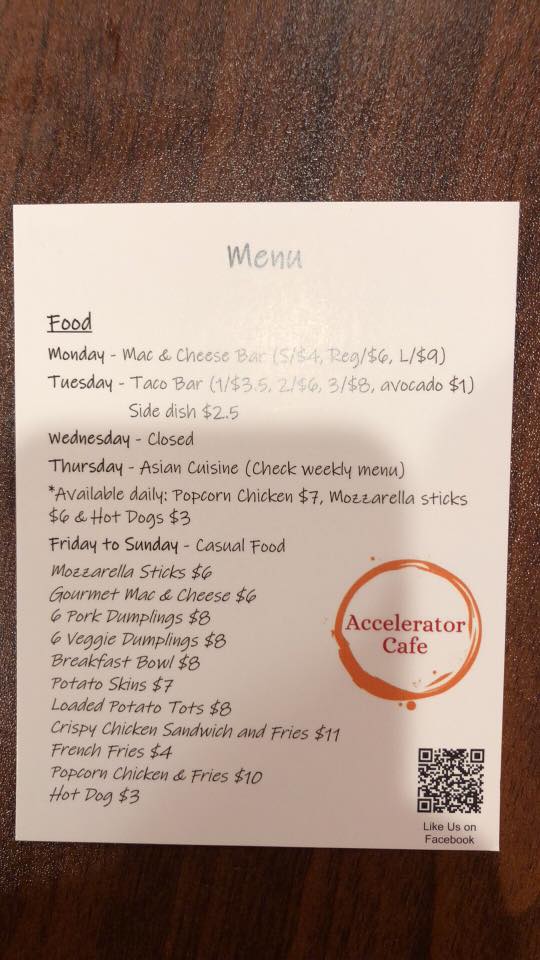 Menu
Food
Monday - Mac & Cheese Bar (S/$4, Reg/$6, L/$9)
Tuesday - Taco Bar (1/$3.5, 2/$6, 3/$8, avocado $1)
Side dish $2.5
Wednesday - Closed
Thursday - Asian Cuisine (Check weekly menu)
*Available daily: Popcorn Chicken $7, Mozzarella sticks
$6 & Hot Dogs $3
Friday to Sunday - Casual Food
Mozzarella Sticks $6
Gourmet Mac & Cheese $6
6 Pork Dumplings $8
6 Veggie Dumplings $8
Breakfast Bowl $8
Potato Skins $7
Loaded Potato Tots $8
Crispy Chicken Sandwich and Fries $11
French Fries $4
Popcorn Chicken & Fries $10
Hot Dog $3
Accelerator
Cafe
Like Us on
Facebook